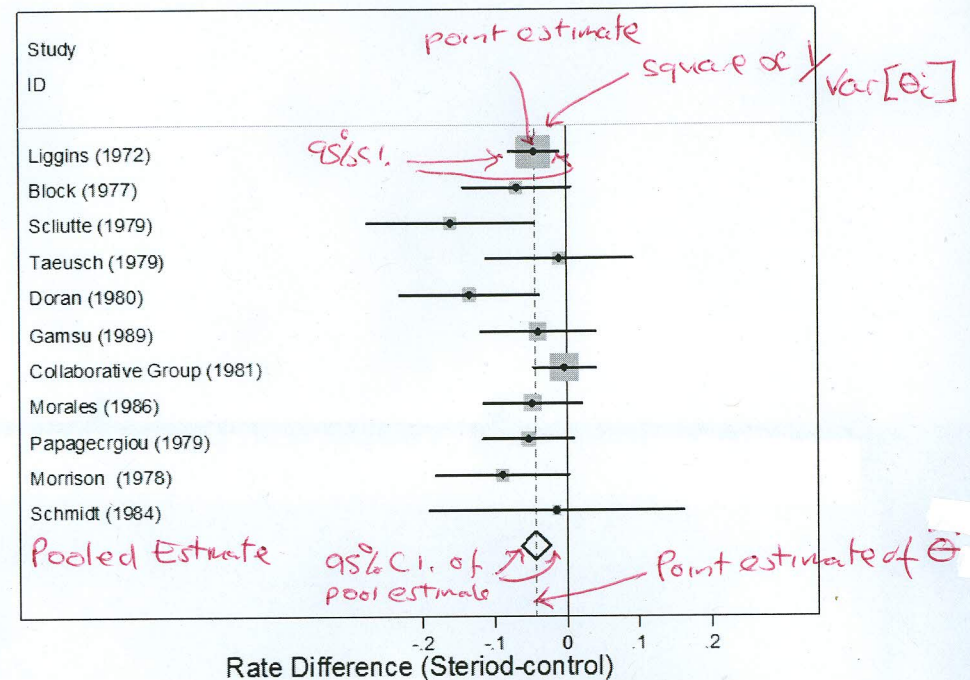 point estimate
square ∝ 1/Var[θi]
Study
ID
95% C.I.
Liggins (1972)
Block (1977)
Scliutte (1979)
Taeusch (1979)
Doran (1980)
Gamsu (1989)
Collaborative Group (1981)
Morales (1986)
Papagecrgiou (1979)
Morrison (1978)
Schmidt (1984)
Pooled Estimate
95% C.I. of
pool estimate
Point estimate of Θ
-.2 -.1 0 .1 .2
Rate Difference (Steriod-control)